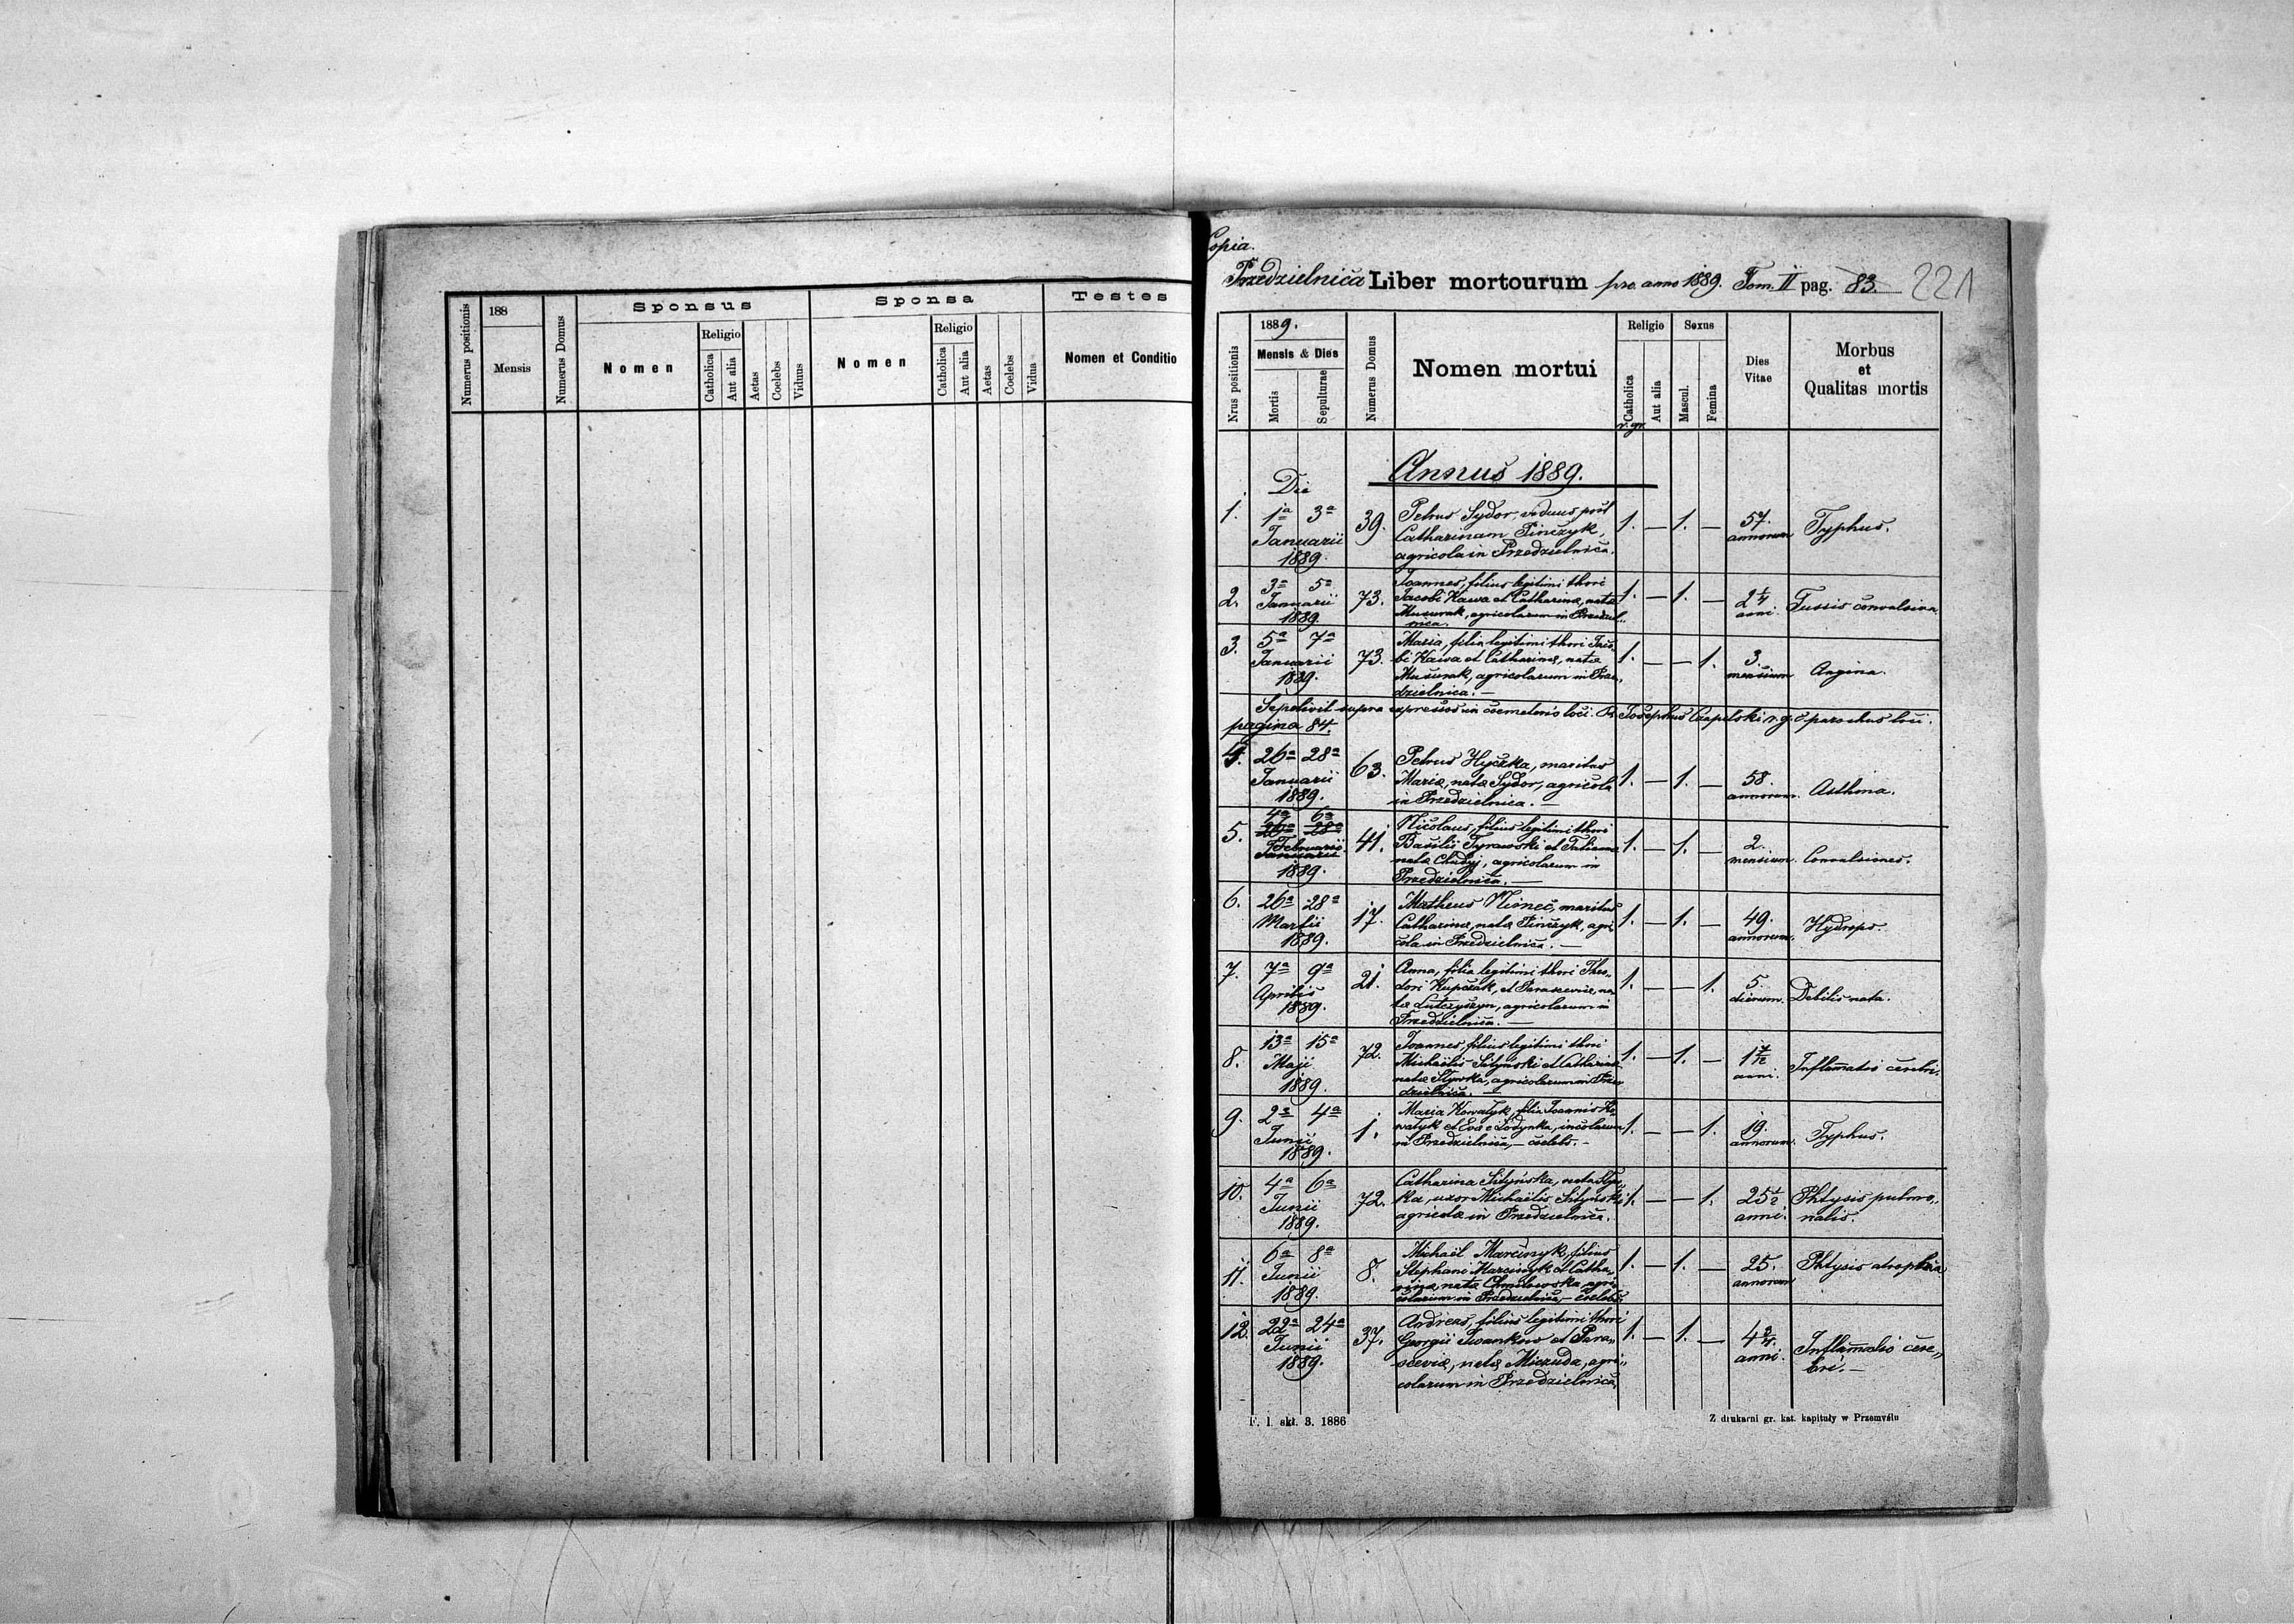 Numerus positionis
188
Mensis
Numerus Domus
Sponsus
Nomen
Religio
Catholica
Aut alia
Aetas
Coelebs
Viduus
Sponsa
Nomen
Religio
Catholica
Aut alia
Aetas
Coelebs
Vidua
Testes
Nomen et Conditio
Copia.
Przedzielnica Liber mortourum pro anno 1889. Tom. II pag. 83. 221
Nrus positionis
1889.
Mensis & Dies
Mortis
Sepulturae
Numerus Domus
Nomen mortui
Religio
Catholica
r. gr.
Aut alia
Sexus
Mascul.
Femina
Dies
Vitae
Morbus
et
Qualitas mortis
Annus 1889.
Die
1. 1a 3a
Januarii
1889.
39.
Petrus Sydor, viduus post
Catharinam Pinczyk,
agricola in Przedzielnica.
1. — 1. —
57.
annorum
Typhus.
2. 3a 5a
Januarii
1889.
73.
Joannes, filius legitimi thori
Jacobi Kawa et Catharinæ, natæ
Mazurak, agricolarum in Przedziel„
nica.
1. — 1. —
2 1/4
anni
Tussis convulsiva.
3. 5a 7a
Januarii
1889.
73.
Maria, filia legitimi thori Jaco„
bi Kawa et Catharinæ, natæ
Mazurak, agricolarum in Prze„
dzielnica. —
1. — — 1.
3.
mensium
Angina.
Sepelivit supra expressos in coemeterio loci. Josephus Czapelski r. g. parochus loci.
pagina 84.
4. 26a 28a
Januarii
1889.
63.
Petrus Hyczka, maritus
Mariæ, natæ Sydor, agricola
in Przedzielnica. —
1. — 1. —
58.
annorum.
Asthma.
5. 4a 6a
26a 28a
Februarii
Januarii
1889.
41.
Nicolaus, filius legitimi thori
Basilii Tyrawski et Tatianæ
natæ Chudyj, agricolarum in
Przedzielnica. —
1. — 1. —
2.
mensium.
Convulsiones.
6. 26a 28a
Martii
1889.
17.
Matheus Nimec, maritus
Catharinæ, natæ Pinczyk, agri„
cola in Przedzielnica. —
1. — 1. —
49.
annorum.
Hydrops.
7. 7a 9a
Aprilis
1889.
21.
Anna, filia legitimi thori Theo„
dori Kupczak, et Parasceviæ, na„
tæ Lutczyszyn, agricolarum in
Przedzielnica. —
1. — — 1.
5.
dierum.
Debilis nata.
8. 13a 15a
Maji
1889.
72.
Joannes, filius legitimi thori
Michaëlis Sitynski et Catharinæ
natæ agricolarum in Prze„
dzielnica. —
1. — 1. —
1 7/12
anni.
Inflam̄atio cerebri.
9. 2a 4a
Junii
1889.
1.
Maria Kowalyk, filia Joannis Ko„
walyk et Evæ Lodynka, incolarum
in Przedzielnica, — coelebs. —
1. — — 1.
19.
annorum.
Typhus.
10. 4a 6a
Junii
1889.
72.
Catharina Sitynska, nata
ka, uxor Michaëlis Sitynski
agricolæ in Przedzielnica.
1. — — 1.
25 1/2
anni.
Phtysis pulmo„
nalis.
11. 6a 8a
Junii
1889.
8.
Michaël Marcinyk, filius
Stephani Marcinyk et Catha„
rinæ, natæ Chmilowska, agri„
colarum in Przedzielnica, — coelebs
1. — 1. —
25.
annorum
Phtysis atrophica
12. 22a 24a
Junii
1889.
37.
Andreas, filius legitimi thori
Georgii Iwankow et Para„
sceviæ, natæ Miczuda, agri„
colarum in Przedzielnica.
1. — 1. —
4 2/4
anni.
Inflam̄atio cere„
bri. —
F. I. skt. 3. 1886
Z drukarni gr. kat. kapituły w Przemyślu